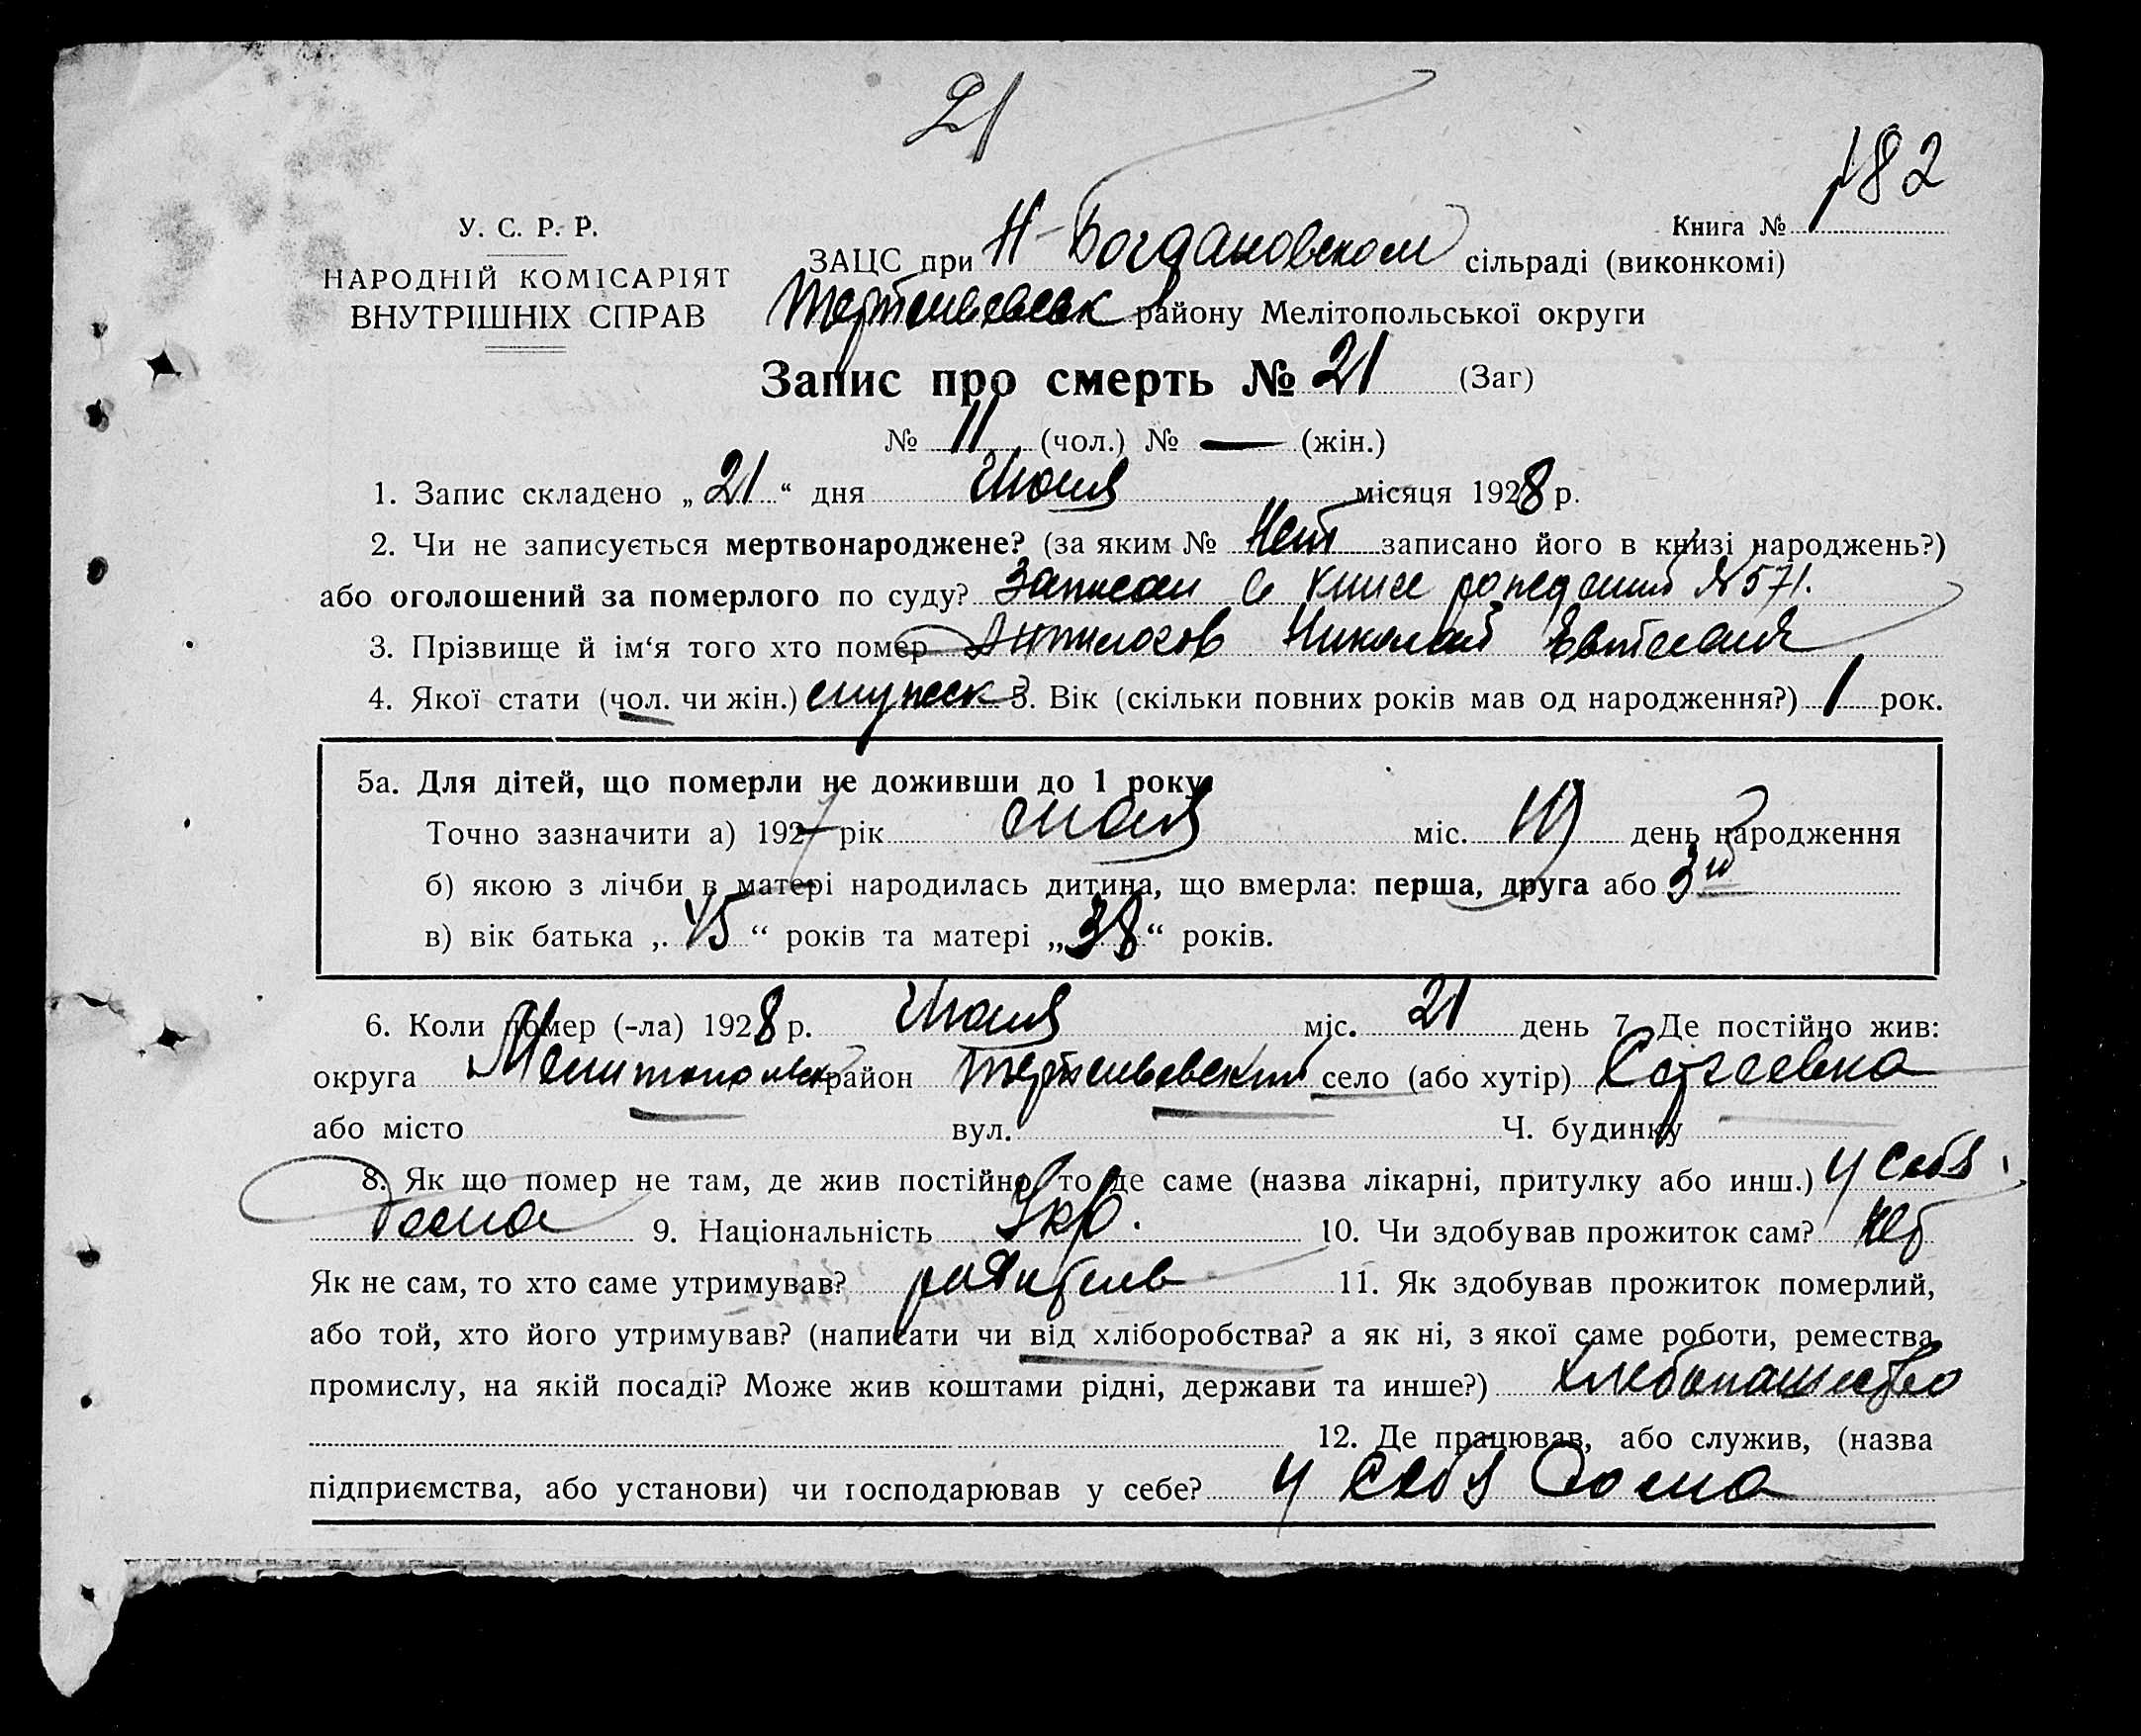 21
182
У. С. Р. Р.
Книга №
ЗАЦС при Н-Богдановском сільраді (виконкомі)
НАРОДНІЙ КОМІСАРІЯТ
ВНУТРІШНІХ СПРАВ
району Мелітопольської округи
Запис про смерть № 21 (Заг)
№ 11 (чол.) № — (жін.)
1. Запис складено „21“ дня Июля місяця 1928 р.
2. Чи не записується мертвонароджене? (за яким № Нет записано його в книзі народжень?)
або оголошений за померлого по суду? Записан в книге рождений №571.
3. Прізвище й ім‘я того хто помер Николай
4. Якої стати (чол. чи жін.) мужск 5. Вік (скільки повних років мав од народження?) 1 рок.
5а. Для дітей, що померли не доживши до 1 року
Точно зазначити а) 1927 рік Июля міс. день народження
б) якою з лічби в матері народилась дитина, що вмерла: перша, друга або 3й
в) вік батька „45“ років та матері „38“ років.
6. Коли помер (-ла) 1928 р. Июля міс. 21 день 7. Де постійно жив:
округа Мелитопольск район село (або хутір)
або місто вул. Ч. будинку
8. Як що помер не там, де жив постійно, то де саме (назва лікарні, притулку або инш.) у себя
дома 9. Національність Укр. 10. Чи здобував прожиток сам? нет
Як не сам, то хто саме утримував? родитель 11. Як здобував прожиток померлий,
або той, хто його утримував? (написати чи від хліборобства? а як ні, з якої саме роботи, ремества,
промислу, на якій посаді? Може жив коштами рідні, держави та инше?) хлебопашество
12. Де працював, або служив, (назва
підприємства, або установи) чи господарював у себе? у себя дома